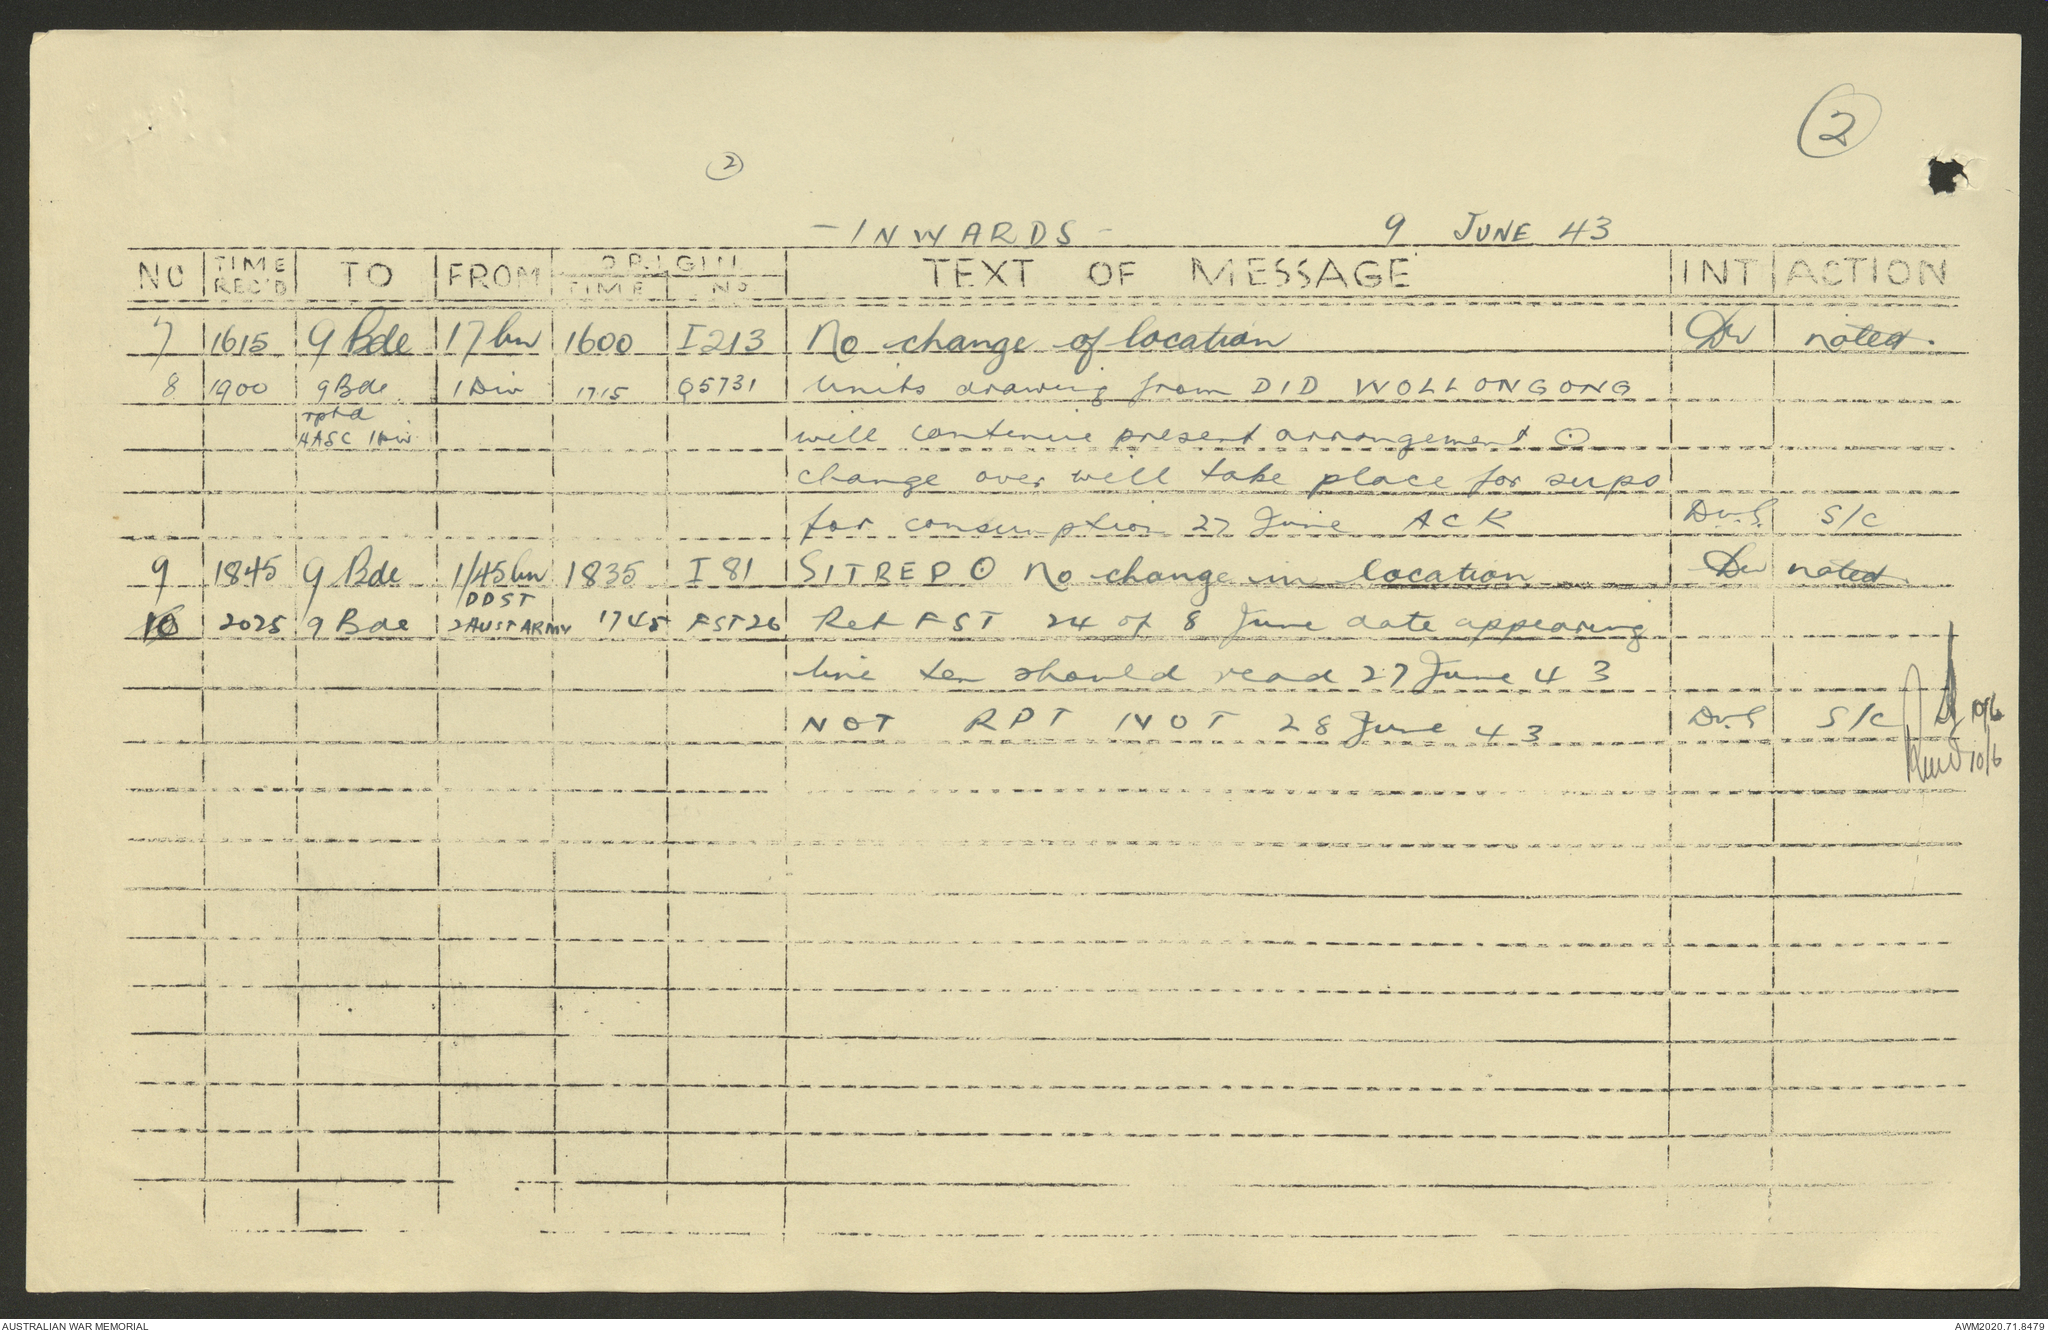 2
2
- INWARDS - 9 JUNE 43
NO TIME REC'D TO FROM ORIGIN TIME NO TEXT OF MESSAGE INT ACTION
7 1615 9 Bde 17 bn 1600 I213 No change of location noted.
8 1900 9 Bde 1 Div 1715 Q5731 Units drawing from DID WOLLONGONG
rptd
AASC 1 Div will continue present arrangement ⊙
change over will take place for sups
for consumption 27 June ACK S/C
9 1845 9 Bde 1/45 bn 1835 I 81 SITREP ⊙ No change in location noted
DDST
10 2025 9 Bde 2 AUST ARMY 1745 FST26 Ref FST 24 of 8 June date appearing
line ten should read 27 June 43
NOT RPT NOT 28 June 43 S/C 10/6
10/6
AUSTRALIAN WAR MEMORIAL AWM2020.71.8479